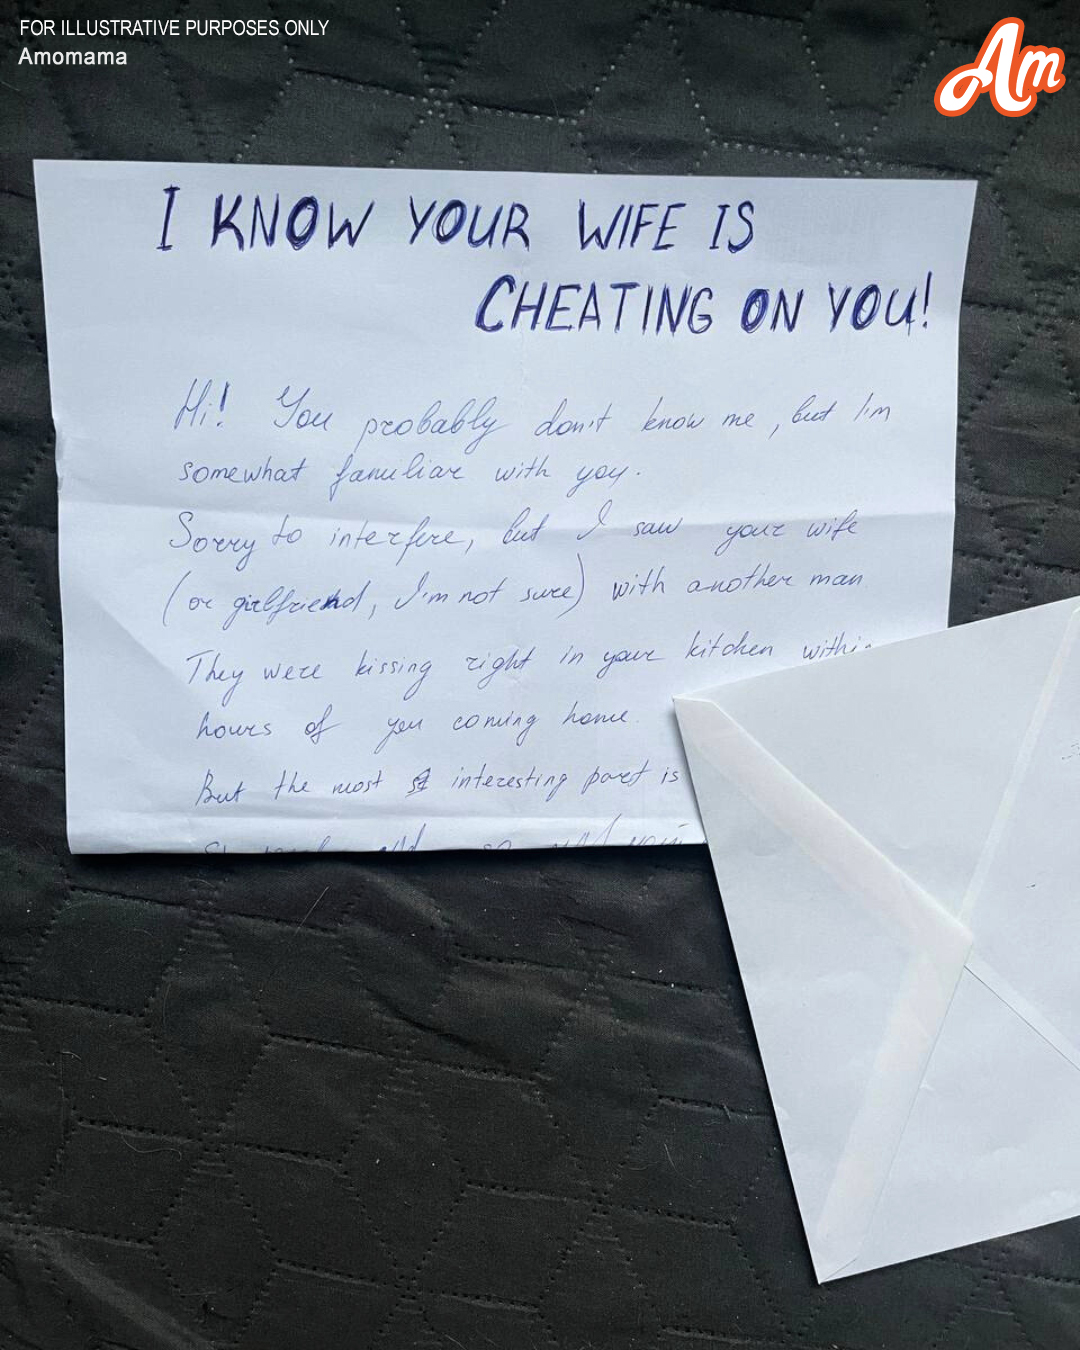 FOR ILLUSTRATIVE PURPOSES ONLY
Amomama
Am
I KNOW YOUR WIFE IS
CHEATING ON YOU!
Hi! You probably don't know me, but I'm
somewhat familiar with you.
Sorry to interfere, but I saw your wife
(or girlfriend, I'm not sure) with another man
They were kissing right in your kitchen
hours of you coming home.
But the most interesting part is